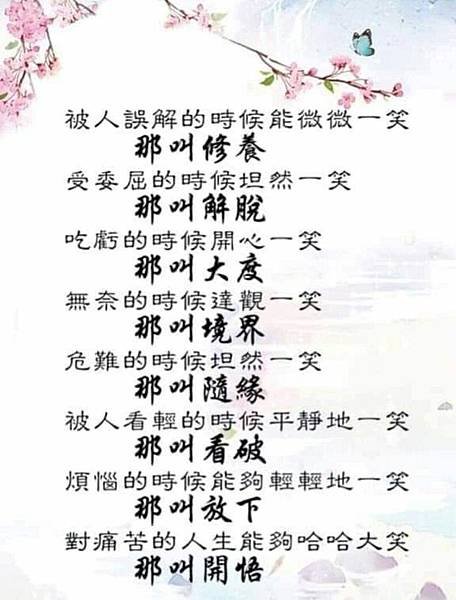 被人誤解的時候能微微一笑
那叫修養
受委屈的時候坦然一笑
那叫解脫
吃虧的時候開心一笑
那叫大度
無奈的時候達觀一笑
那叫境界
危難的時候坦然一笑
那叫隨緣
被人看輕的時候平靜地一笑
那叫看破
煩惱的時候能夠輕輕地一笑
那叫放下
對痛苦的人生能夠哈哈大笑
那叫開悟